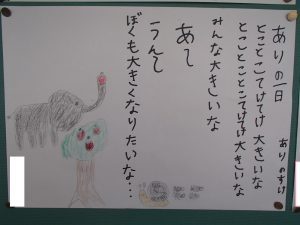 ありの一日
ありのすけ
とことこてけてけ 大きいな
とことことことこてけてけ 大きいな
みんな大きいな
あー
うんて
ぼくも大きくなりたいな…